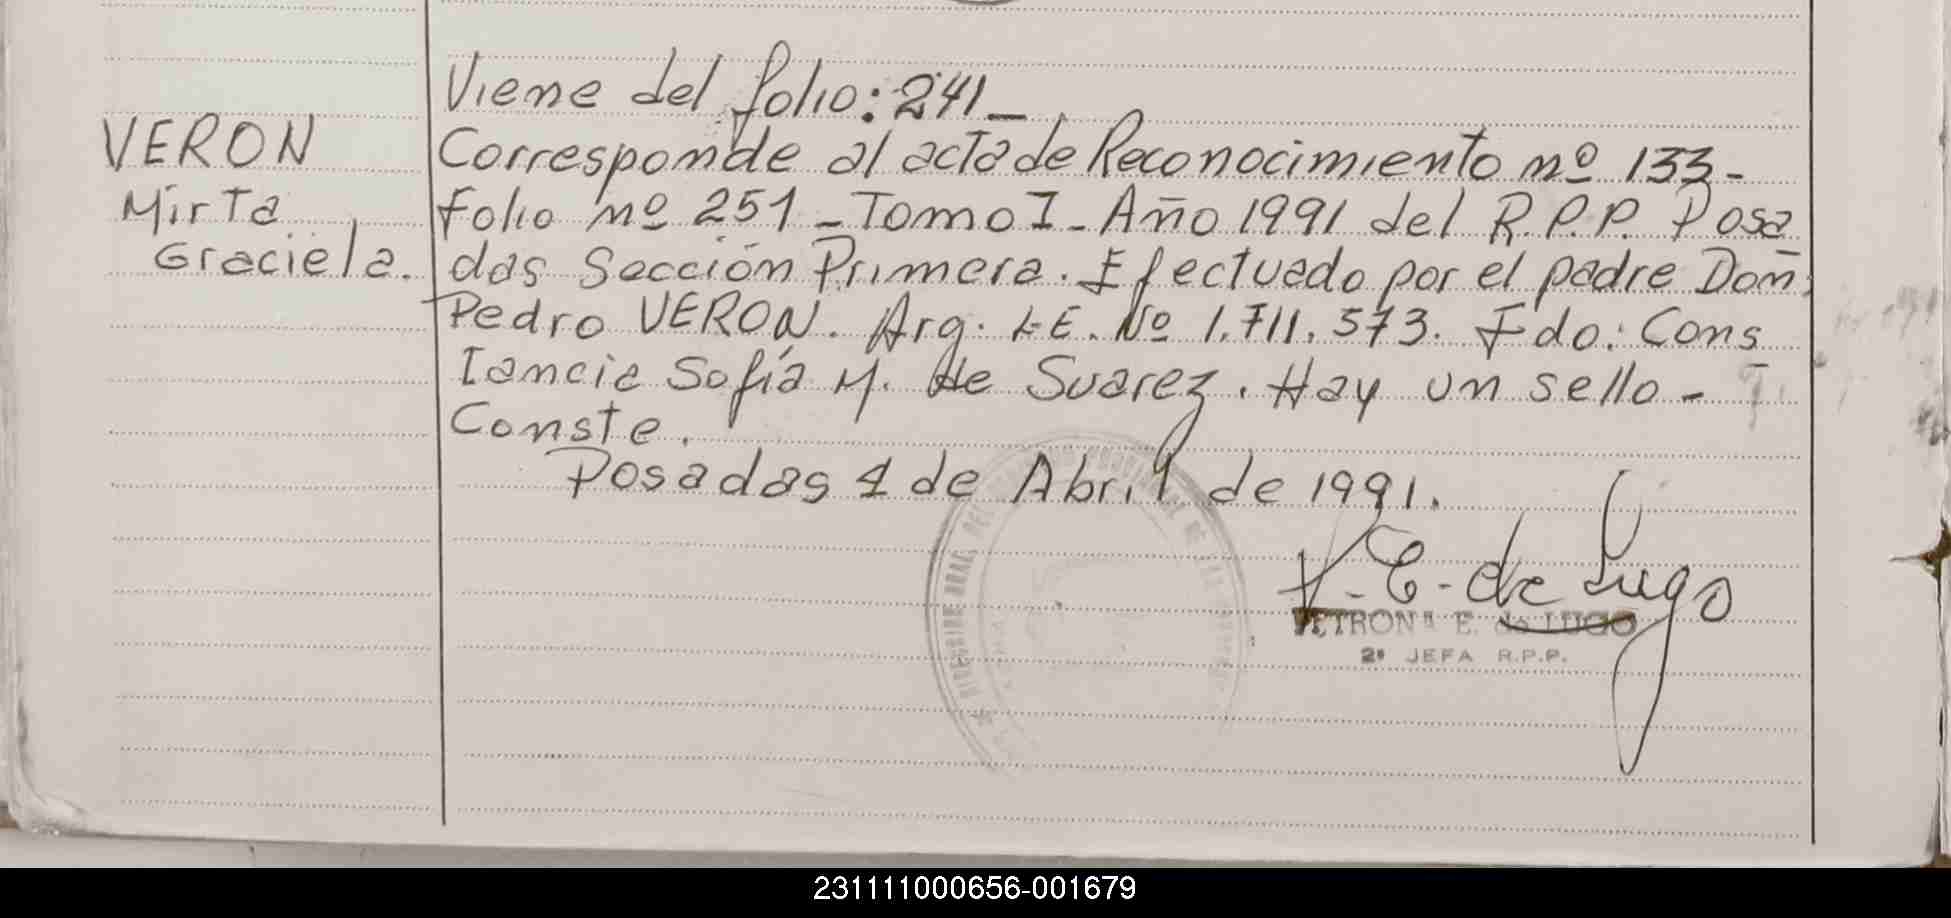 Viene del folio: 241_
VERON
Mirta
Graciela.
Corresponde al acta de Reconocimiento nº 133-
folio nº 251 - Tomo I - Año 1991 del R.P.P. Posa
das Sección Primera. Efectuado por el padre Don:
Pedro VERON. Arg. L.E. Nº 1.711.573. Fdo: Cons
tancia Sofía M. de Suarez. Hay un sello -
Conste.
Posadas 1 de Abril de 1991.
P. E. de Lugo
PETRONA E. de LUGO
2ª JEFA R.P.P.
DIRECCION GRAL. DEL
231111000656-001679